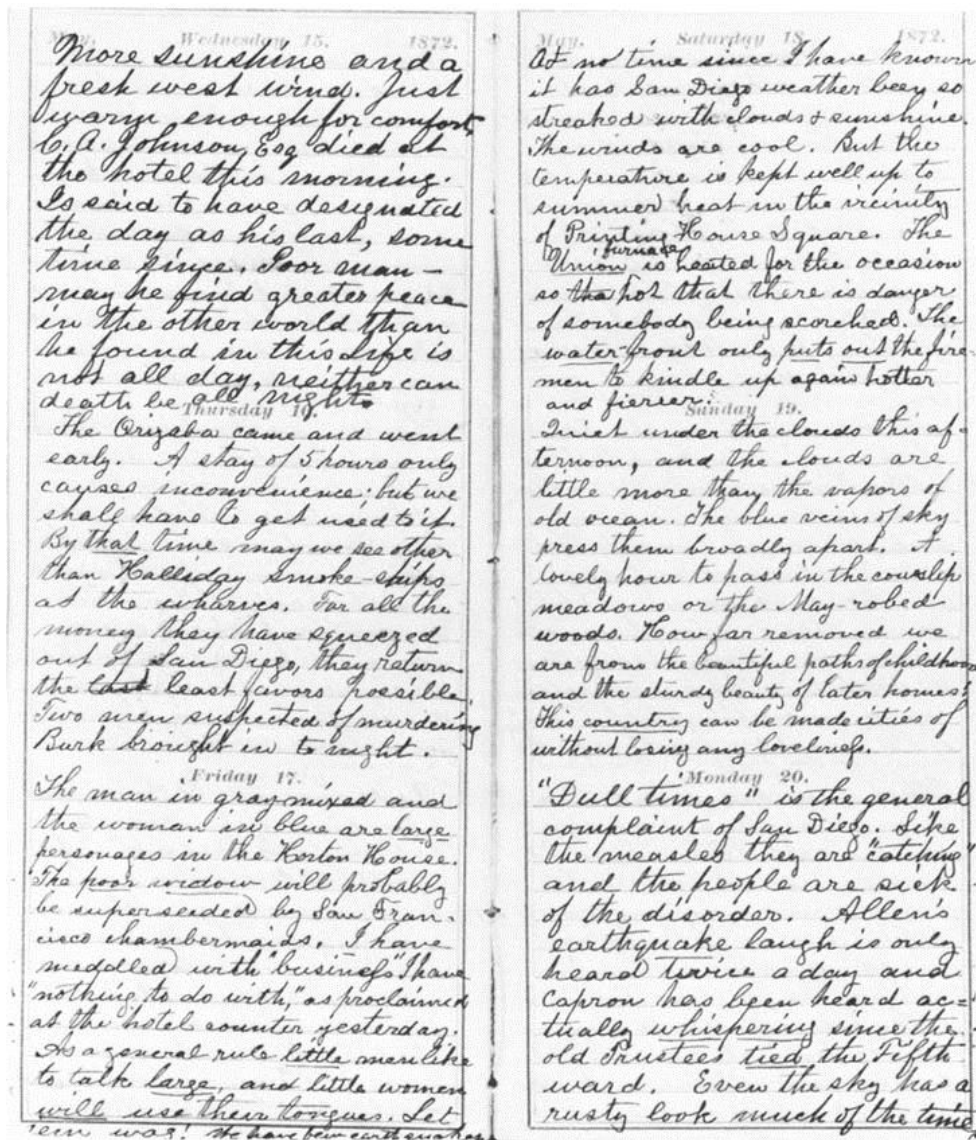 May, Wednesday 15. 1872.
More sunshine and a
fresh west wind. Just
warm enough for comfort,
C. A. Johnson, Esq died at
the hotel this morning.
Is said to have designated
the day as his last, some
time since. Poor man —
may he find greater peace
in the other world than
he found in this. Life is
not all day, neither can
death be all night.
Thursday 16.
The Orizaba came and went
early. A stay of 5 hours only
causes inconvenience; but we
shall have to get used to it.
By that time may we see other
than Halliday smoke-ships
at the wharves. For all the
money they have squeezed
out of San Diego, they return
the last least favors possible.
Two men suspected of murdering
Burk brought in to night.
Friday 17.
The man in gray mixed and
the woman in blue are large
personages in the Horton House.
The poor widow will probably
be superseeded by San Fran-
cisco chambermaids. I have
meddled with "business" I have
"nothing to do with," as proclaimed
at the hotel counter yesterday.
As a general rule little men like
to talk large, and little women
will use their tongues. Let
'em wag! We have few earthquakes
May. Saturday 18. 1872.
At no time since I have known
it has San Diego weather been so
streaked with clouds & sunshine.
The winds are cool. But the
temperature is kept well up to
summer heat in the vicinity
of Printing House Square. The
Union furnace is heated for the occasion
so hot that there is danger
of somebody being scorched. The
water-front only puts out the fire-
men to kindle up again hotter
and fiercer.
Sunday 19.
Quiet under the clouds this af-
ternoon, and the clouds are
little more than the vapors of
old ocean. The blue veins of sky
press them broadly apart. A
lovely hour to pass in the cowslip
meadows or the May-robed
woods. How far removed we
are from the beautiful paths of childhood
and the sturdy beauty of later homes!
This country can be made cities of
without losing any loveliness.
Monday 20.
"Dull times" is the general
complaint of San Diego. Like
the measles they are "catching"
and the people are sick
of the disorder. Allen's
earthquake laugh is only
heard twice a day and
Capron has been heard ac-
tually whispering since the
old Trustees tied the Fifth
ward. Even the sky has a
rusty look much of the time,